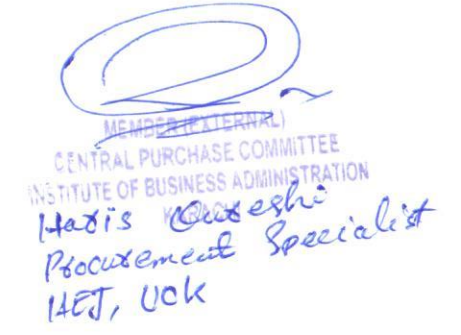 MEMBER (EXTERNAL)
CENTRAL PURCHASE COMMITTEE
INSTITUTE OF BUSINESS ADMINISTRATION
KARACHI
Haris Qureshi
Procurement Specialist
HEJ, UoK